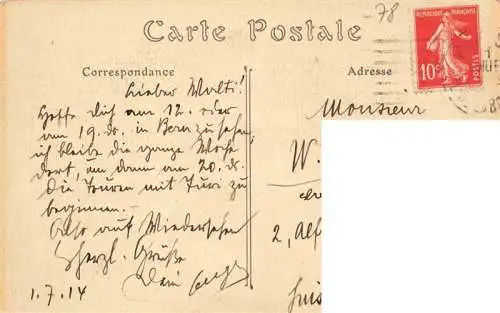 -78
Carte Postale
REPUBLIQUE FRANÇAISE
10c
POSTES
Correspondance
Adresse
Lieber Walti!
Hoffe dich am 12. oder
am 19. ds. in Bern zu sehen,
ich bleibe die ganze Woche
dort, um dann am 20. ds.
die Touren mit Turi zu
beginnen.-
Also auf Wiedersehen
Herzl. Grüße
Dein
1.7.14
Monsieur
W.
2, Alf
Suis